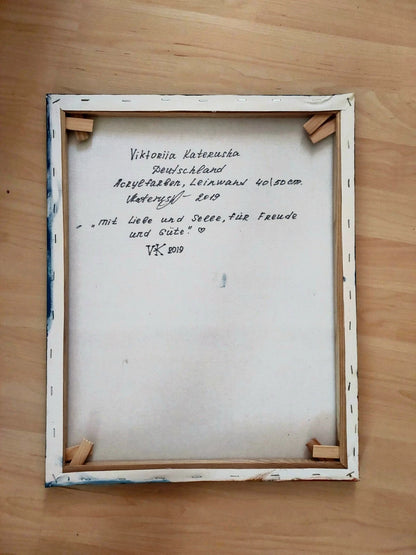 Viktoriia Katerusha
Deutschland
Acrylfarben, Leinwand 40\50cm.
2019
„mit Liebe und Seele, für Freude
und Güte." ♡
VK 2019